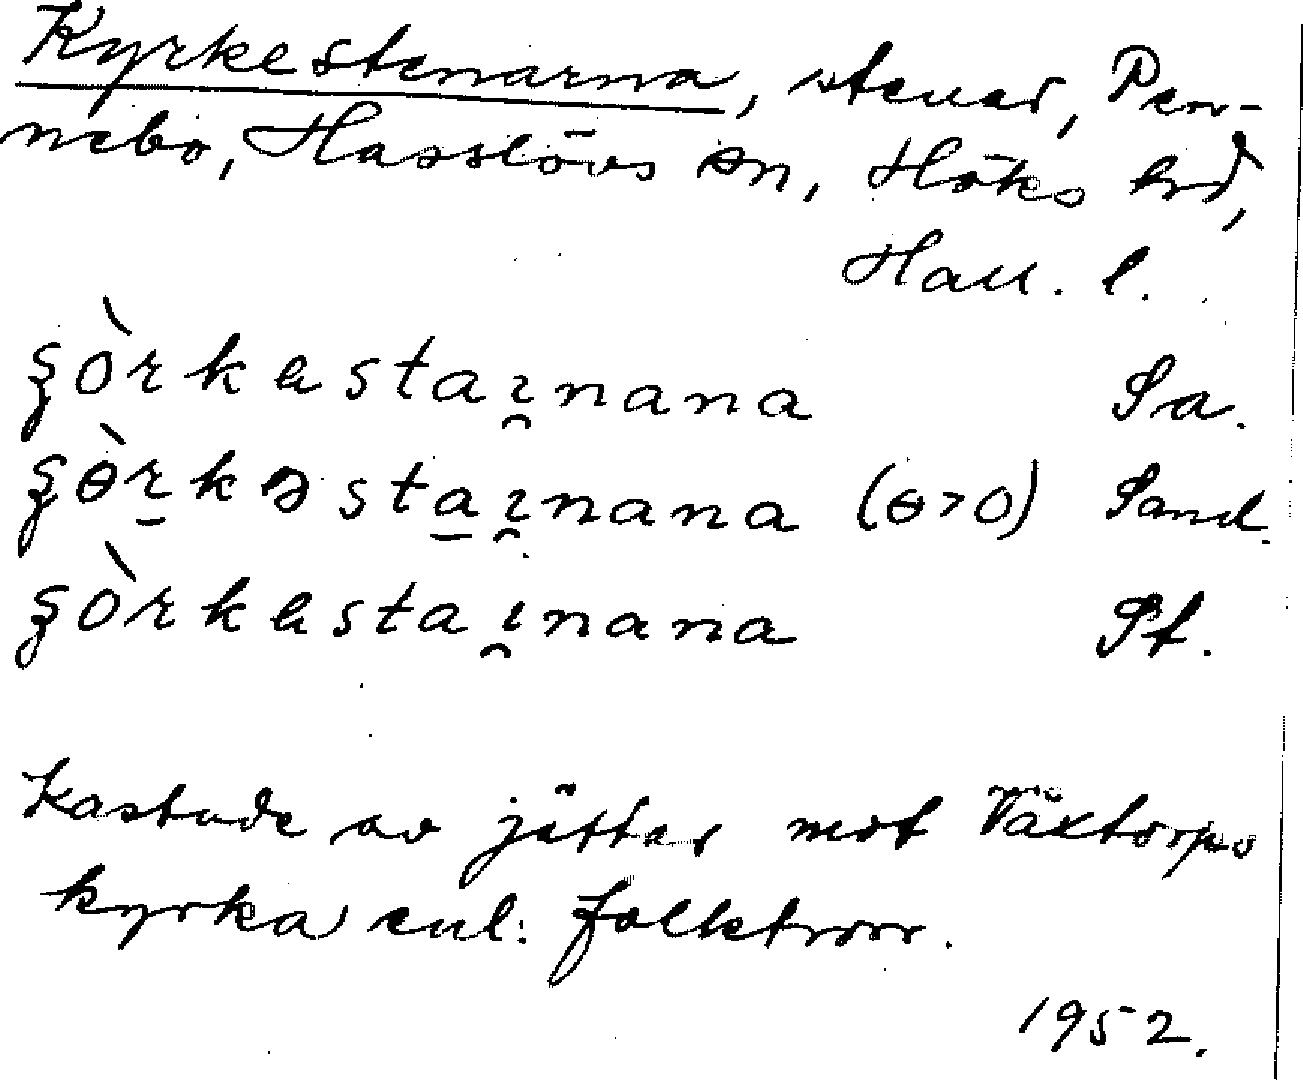 Kyrkestenarna, stenar, Pen-
nebo, Hasslövs sn, Höks hrd,
Hall. l.
ʂòrkɐstaɪ̯nana Sa.
ʂɵ̀rkəstaɪ̯nana (ɵ>o) Sand.
ʂòrkɐstaɪ̯nana St.
Kastade av jättar mot Växtorps
kyrka enl. folktron.
1952.